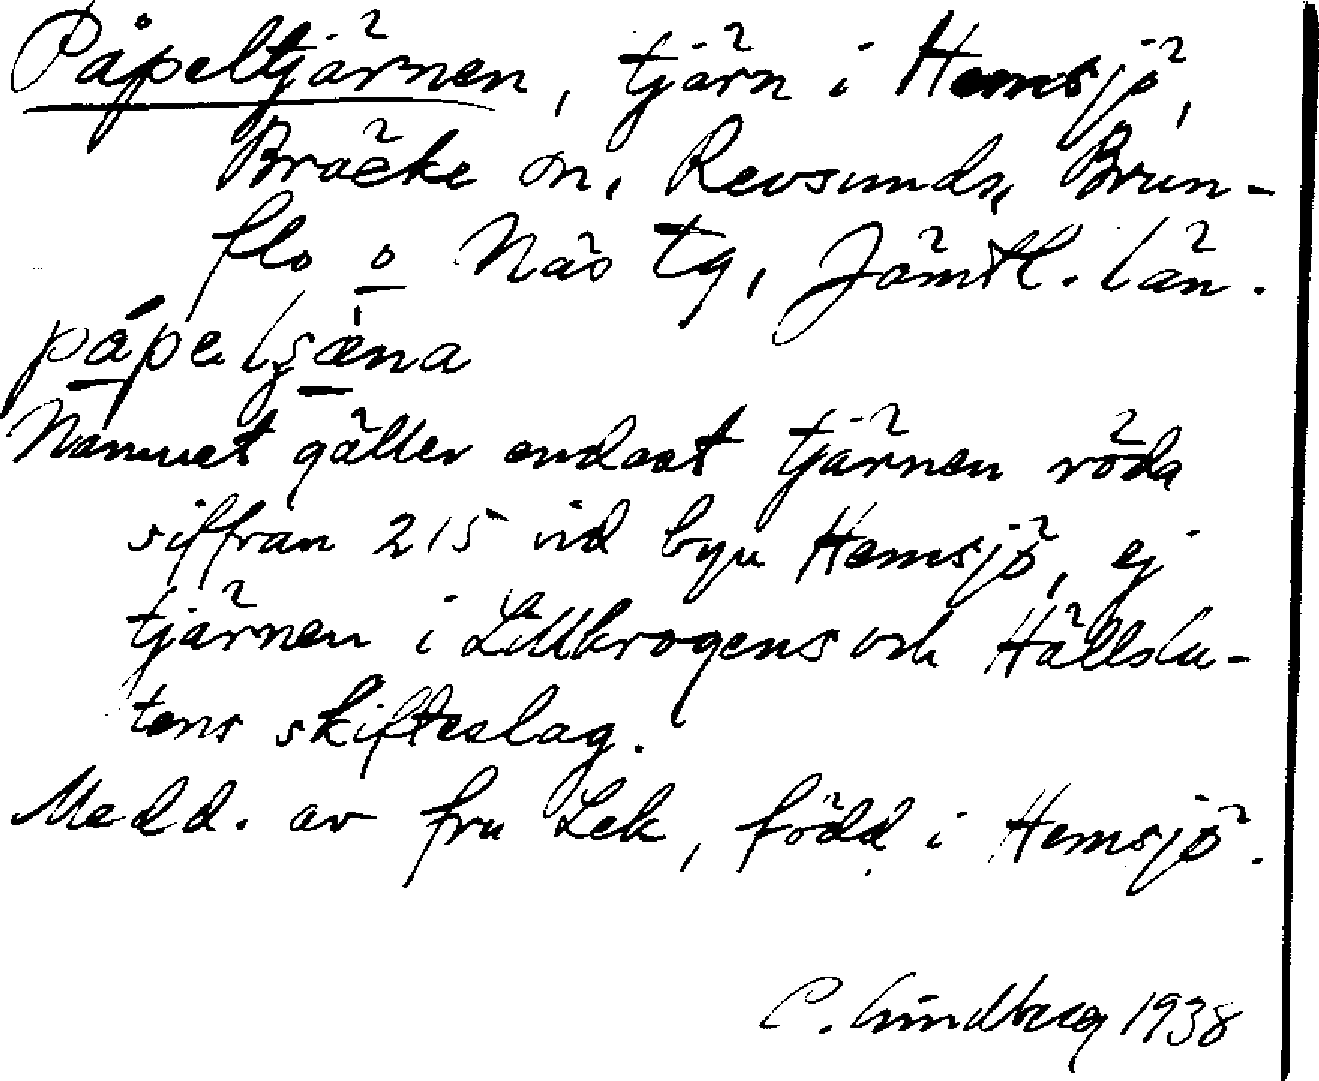 Påpeltjärnen, tjärn i Hemsjö,
Bräcke sn, Revsunds, Brun-
flo o Näs tg, Jämtl. län.
Namnet gäller endast tjärnen röda
siffran 215 vid byn Hemsjö, ej
tjärnen i Lillkrogens och Hällslä-
tens skifteslag.
Medd. av fru Lek, född i Hemsjö.
C. Lindberg 1938